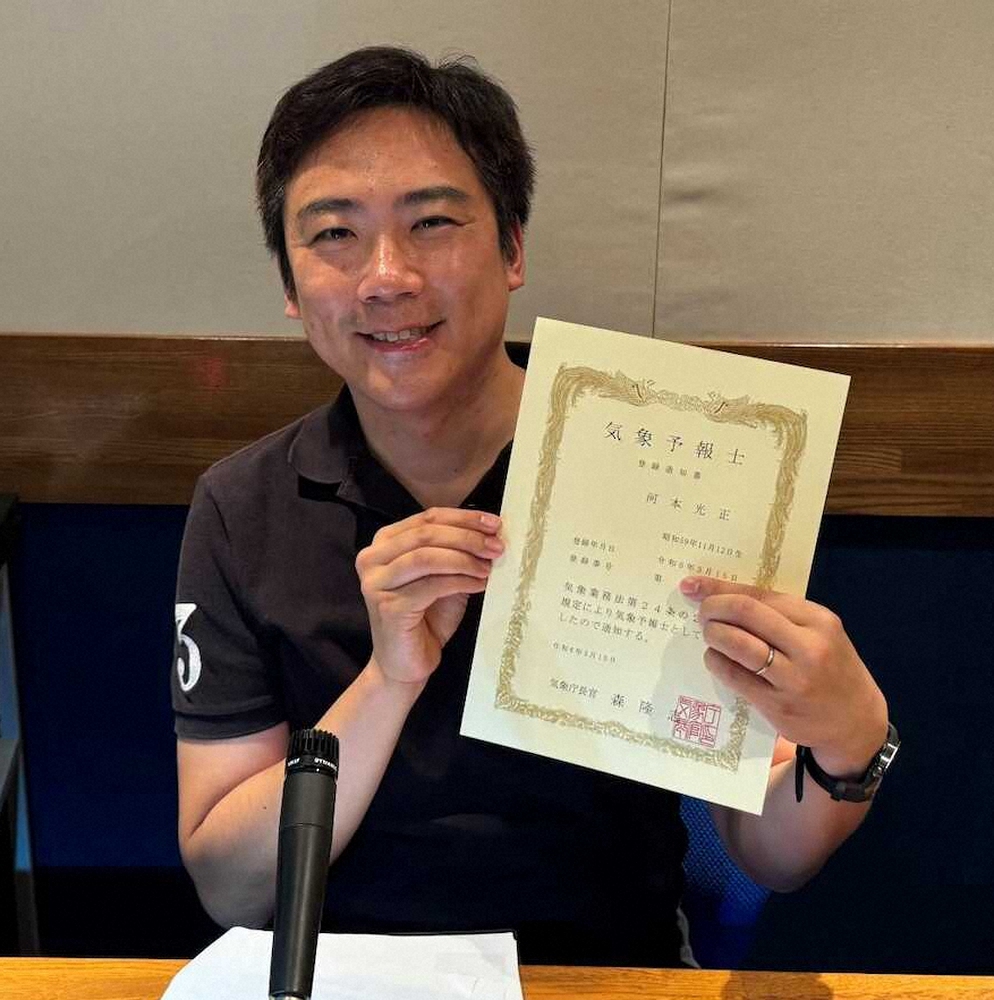 気象予報士
登録通知書
河本光正
昭和59年11月12日生
登録年月日 令和6年3月15日
登録番号 第
気象業務法第24条の2
規定により気象予報士として
したので通知する。
令和6年3月15日
気象庁長官 森 隆志
3